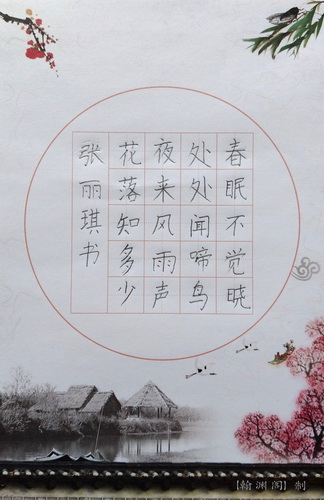 春眠不觉晓
处处闻啼鸟
夜来风雨声
花落知多少
张丽琪书
【翰渊阁】制